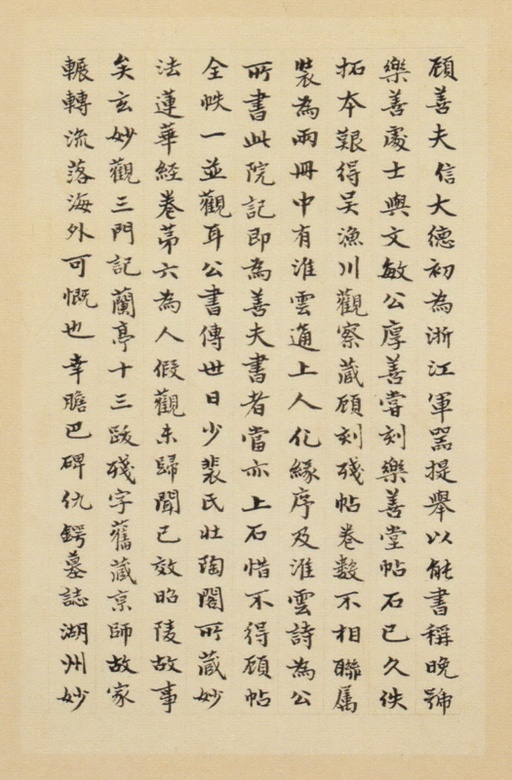 顧善夫信大德初為浙江軍器提舉以能書稱晚號
樂善處士與文敏公厚善嘗刻樂善堂帖石已久佚
拓本艱得吴漁川觀察藏顧刻殘帖卷數不相聯属
裝為兩冊中有淮雲通上人化緣序及淮雲詩為公
所書此院記即為善夫書者當亦上石惜不得顧帖
全帙一並觀耳公書傳世日少裴氏壮陶閣所藏妙
法蓮華經卷苐六為人假觀未歸聞已效昭陵故事
矣玄妙觀三門記蘭亭十三跋殘字舊藏京師故家
輾轉流落海外可慨也幸膽巴碑仇鍔墓誌湖州妙